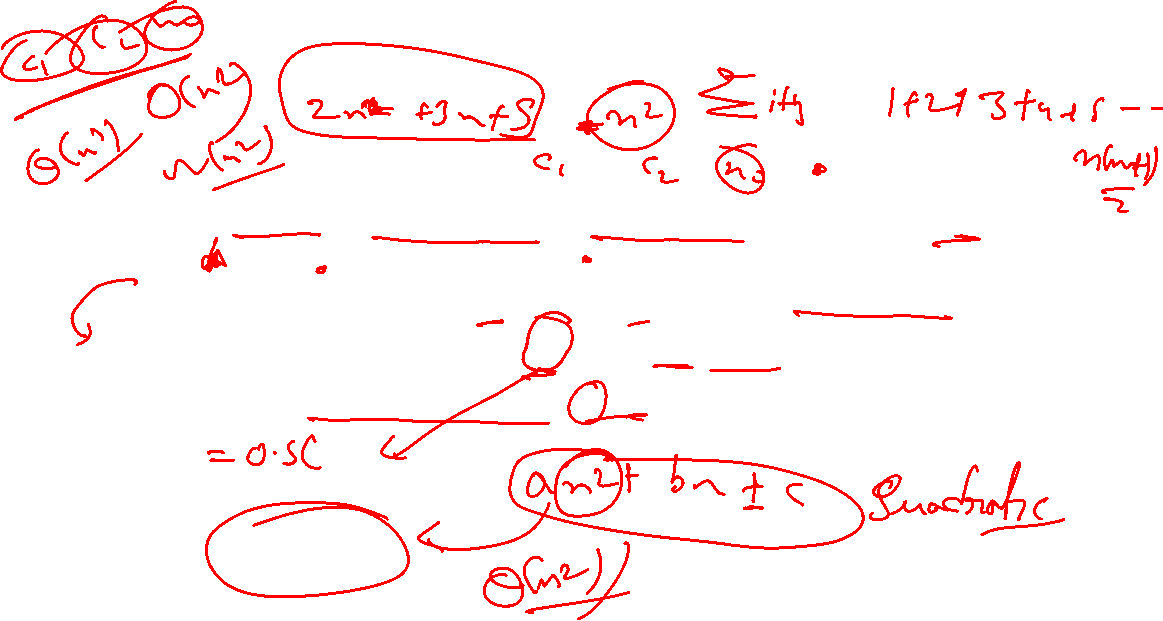 C₁ C₂ n₀
O(n²)
2n² + 3n + 5
n²
1+2+3+4+5 --
θ(n²)
Ω(n²)
C₁ C₂ n₀
n(n+1)
2
= 0.5C
an² + bn ± c Quadratic
θ(n²)